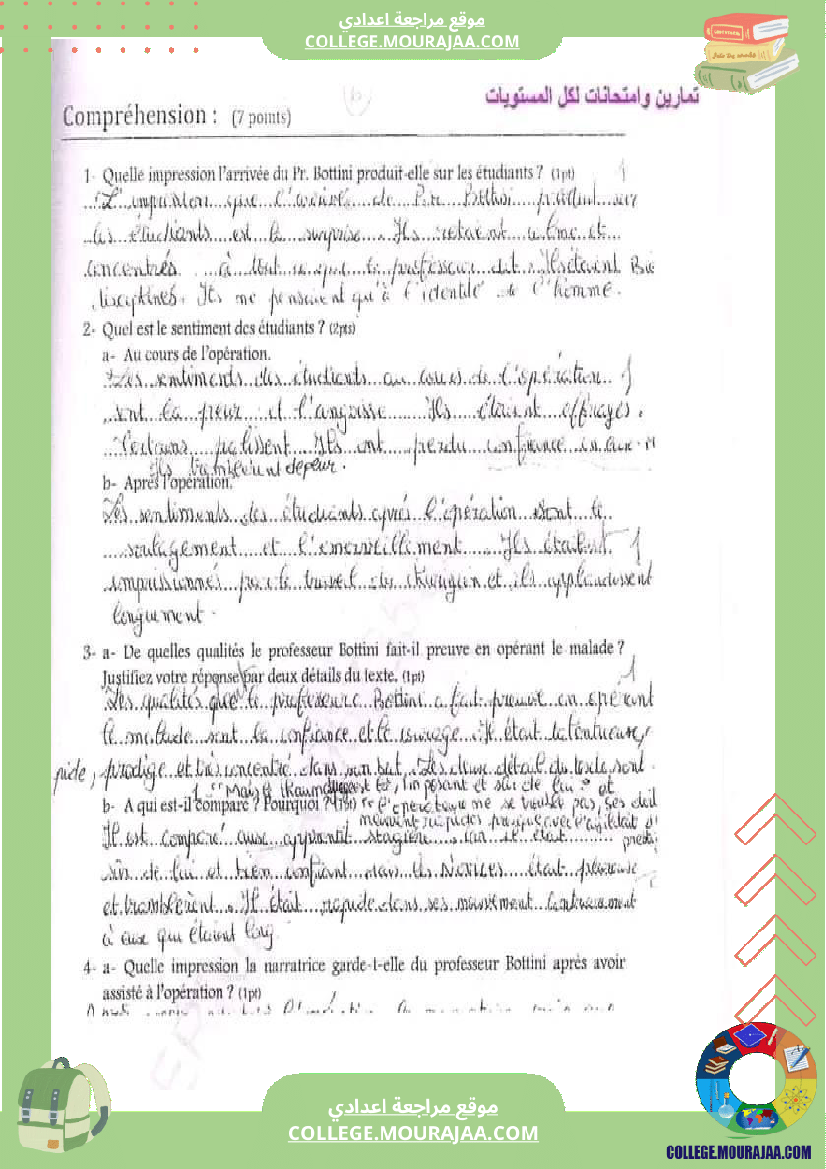 موقع مراجعة اعدادي
COLLEGE.MOURAJAA.COM
تمارين وامتحانات لكل المستويات
Compréhension : (7 points)
1- Quelle impression l'arrivée du Pr. Bottini produit-elle sur les étudiants ? (1pt) 1
L'impression que l'arrivée de Pr. Bottini produit sur
les étudiants est la surprise. Ils et
concentrés à tout ce que le professeur dit. Ils étaient
disciplinés. Ils ne pensaient qu'à l'identité de l'homme.
2- Quel est le sentiment des étudiants ? (2pts)
a- Au cours de l'opération.
Les sentiments des étudiants au cours de l'opération 1
sont la peur et l'angoisse Ils étaient
Certains palissent Ils ont perdu confiance en eux
Ils tramblerent de peur.
b- Après l'opération.
Les sentiments des étudiants après l'opération sont le
soulagement et l'emerveillement. Ils étaient 1
impressionnés par le travail du chirurgien et ils applaudissent
longuement.
3- a- De quelles qualités le professeur Bottini fait-il preuve en opérant le malade ?
Justifiez votre réponse par deux détails du texte. (1pt) 1
Les qualités que le professeur Bottini a fait preuve en opérant
le malade sont la confiance et le courage. Il était
prodige et très concentré dans son but. Les deux détail du texte sont
imposant et sûr de lui et
b- A qui est-il comparé ? Pourquoi ? (1pt) l'operateur me se pas, ses
Il est comparé aux stagière car il était
sûr de lui et bien confiant dans les novices était
et tramblèrent. Il était rapide dans ses mouvement contrairement
à eux qui étaient long
4- a- Quelle impression la narratrice garde-t-elle du professeur Bottini après avoir
assisté à l'opération ? (1pt)
موقع مراجعة اعدادي
COLLEGE.MOURAJAA.COM
COLLEGE.MOURAJAA.COM